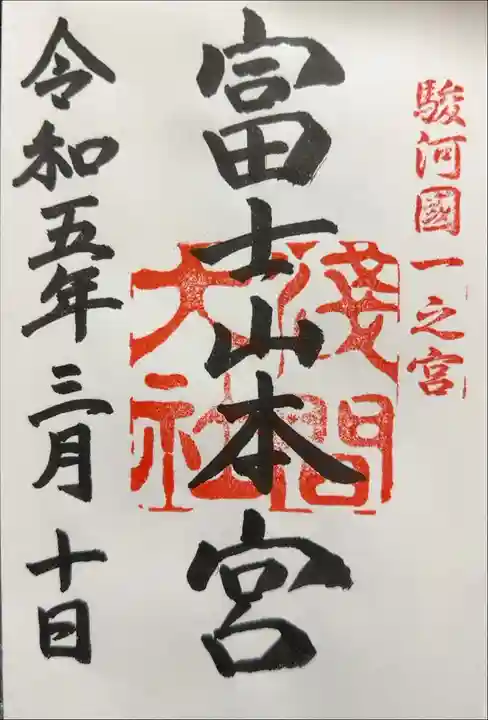 駿河國一之宮
富士山本宮
淺間
大社
令和五年三月十日